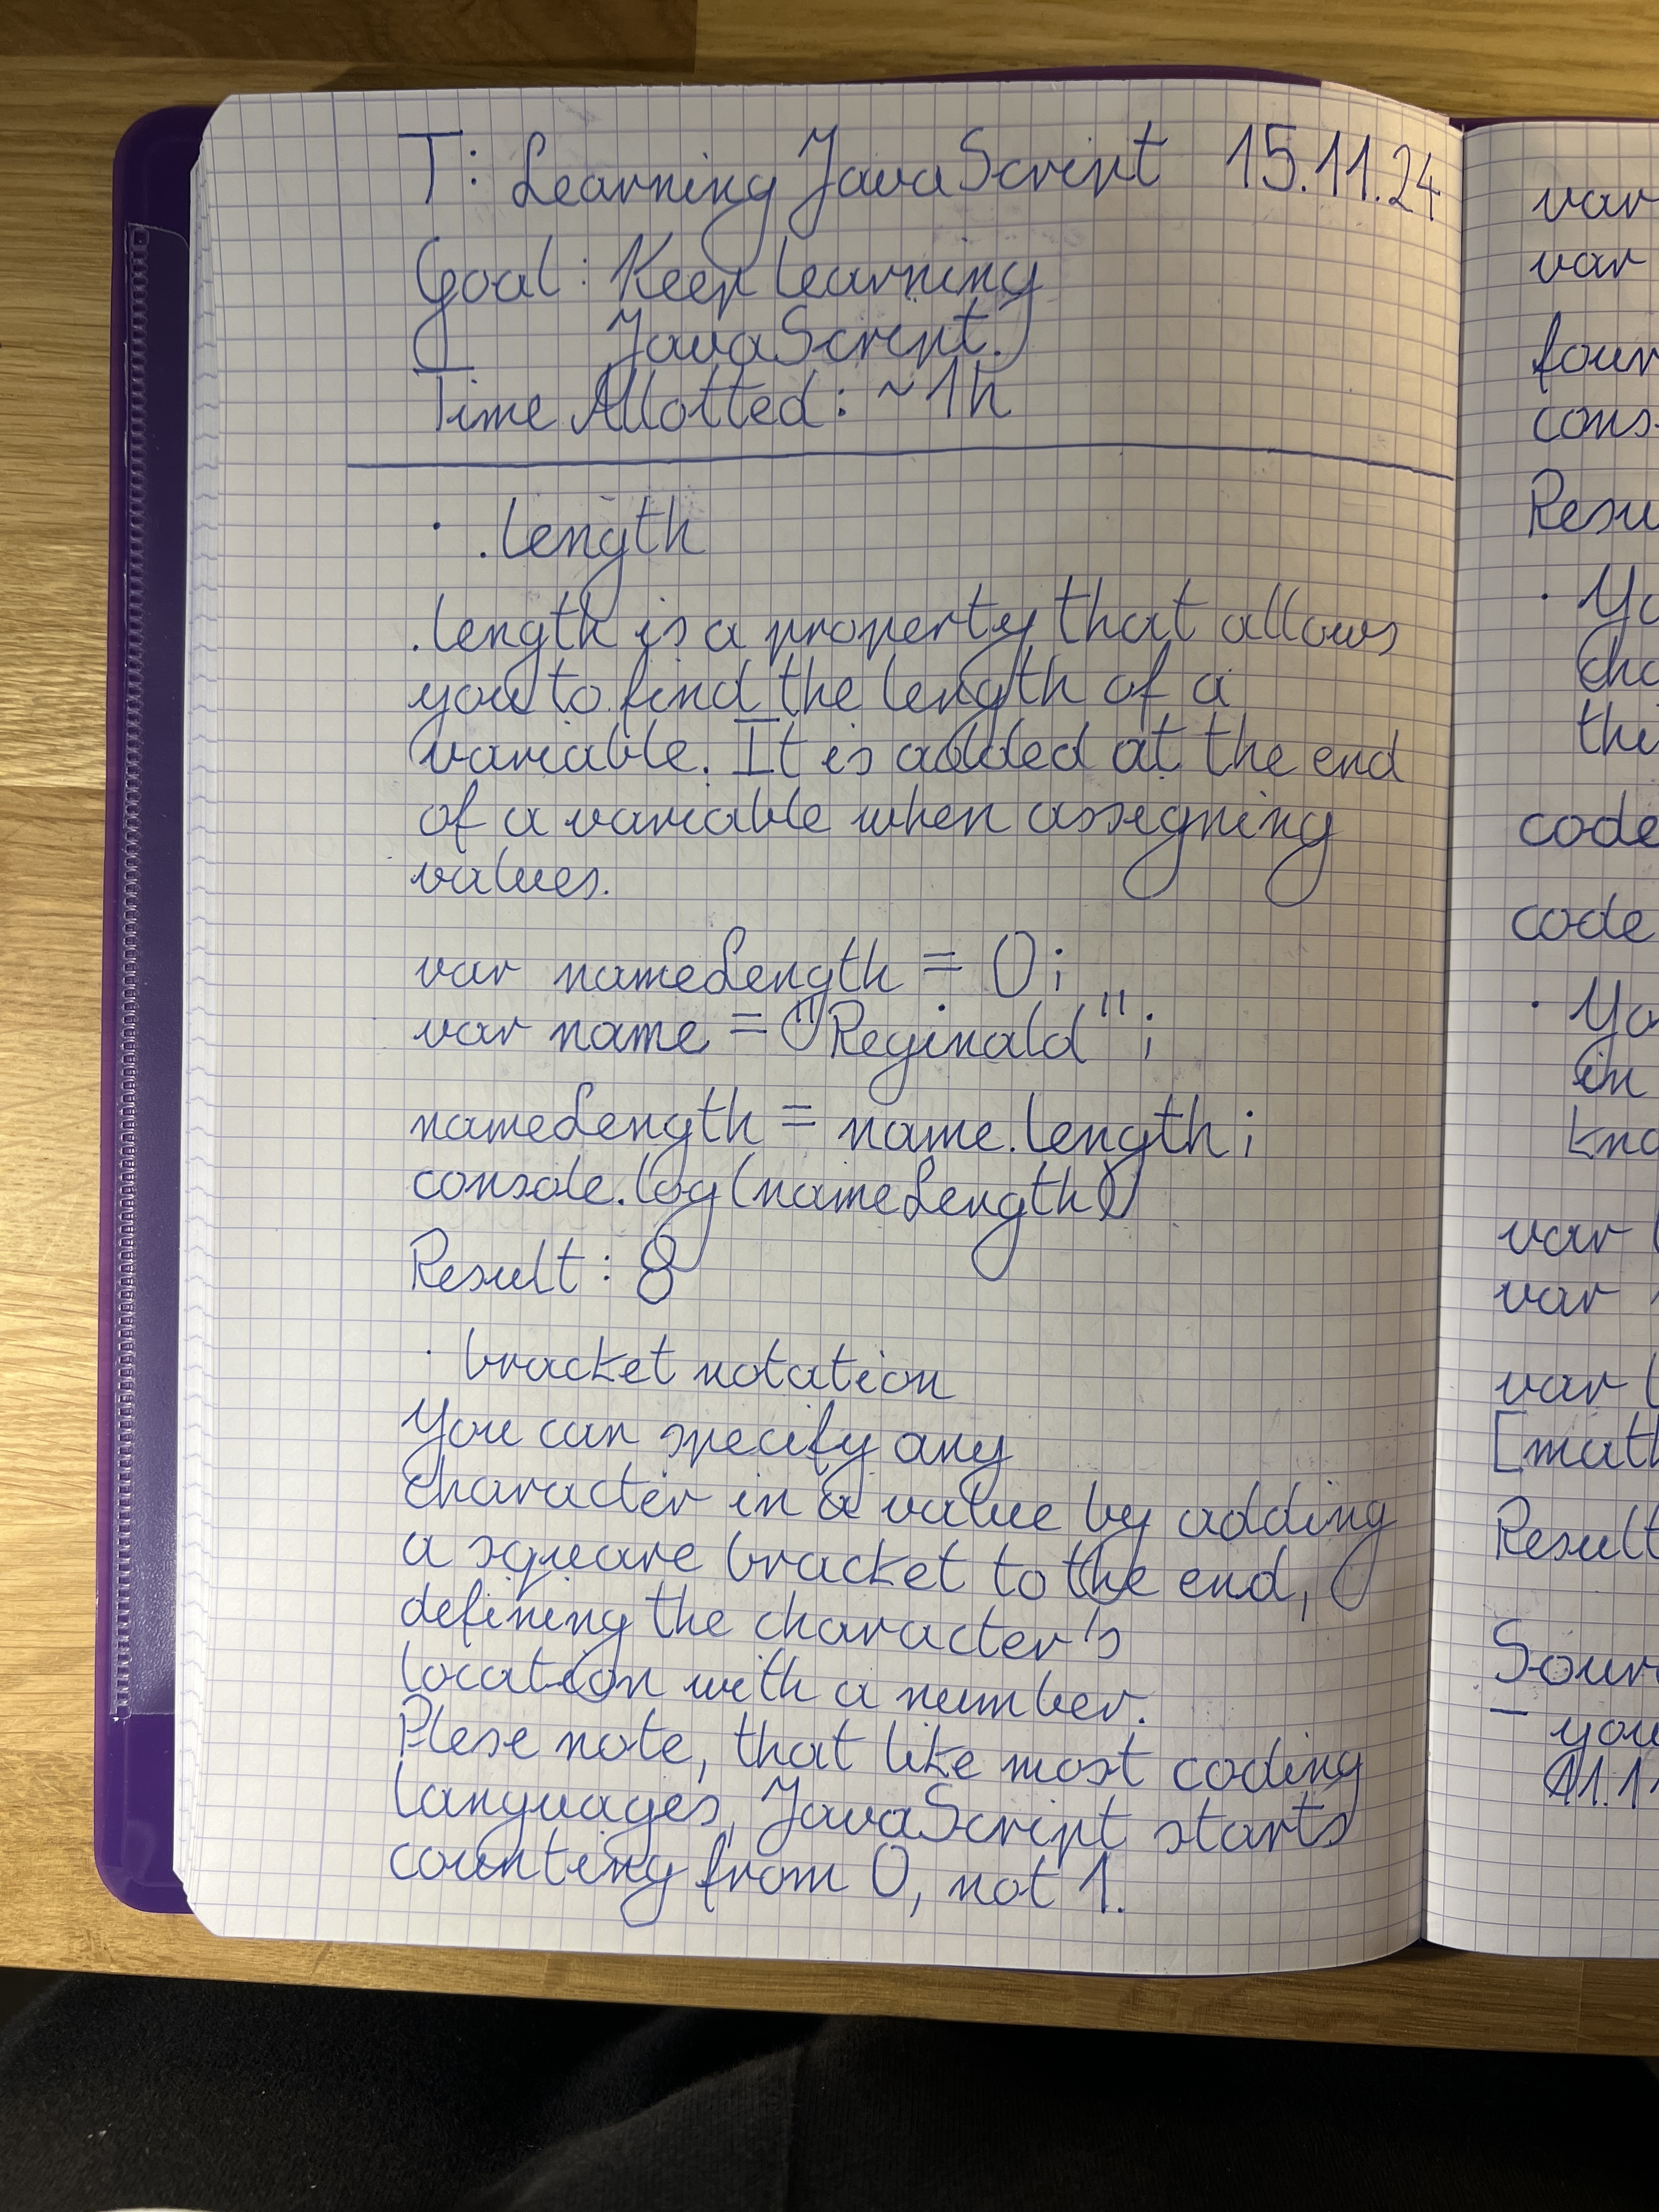 T: Learning JavaScript 15.11.24
Goal: Keep learning
JavaScript.
Time Allotted: ~1h
· .length
.length is a property that allows
you to find the length of a
variable. It is added at the end
of a variable when assigning
values.
var nameLength = 0;
var name = "Reginald";
nameLength = name.length;
console.log(nameLength)
Result: 8
· bracket notation
You can specify any
character in a value by adding
a square bracket to the end,
defining the character's
location with a number.
Plese note, that like most coding
languages, JavaScript starts
counting from 0, not 1.
var
var
four
cons
Resu
· Yo
cha
thi
code
code
· Yo
in
kno
var
var
var
[mat
Result
Sour
- you
11.1